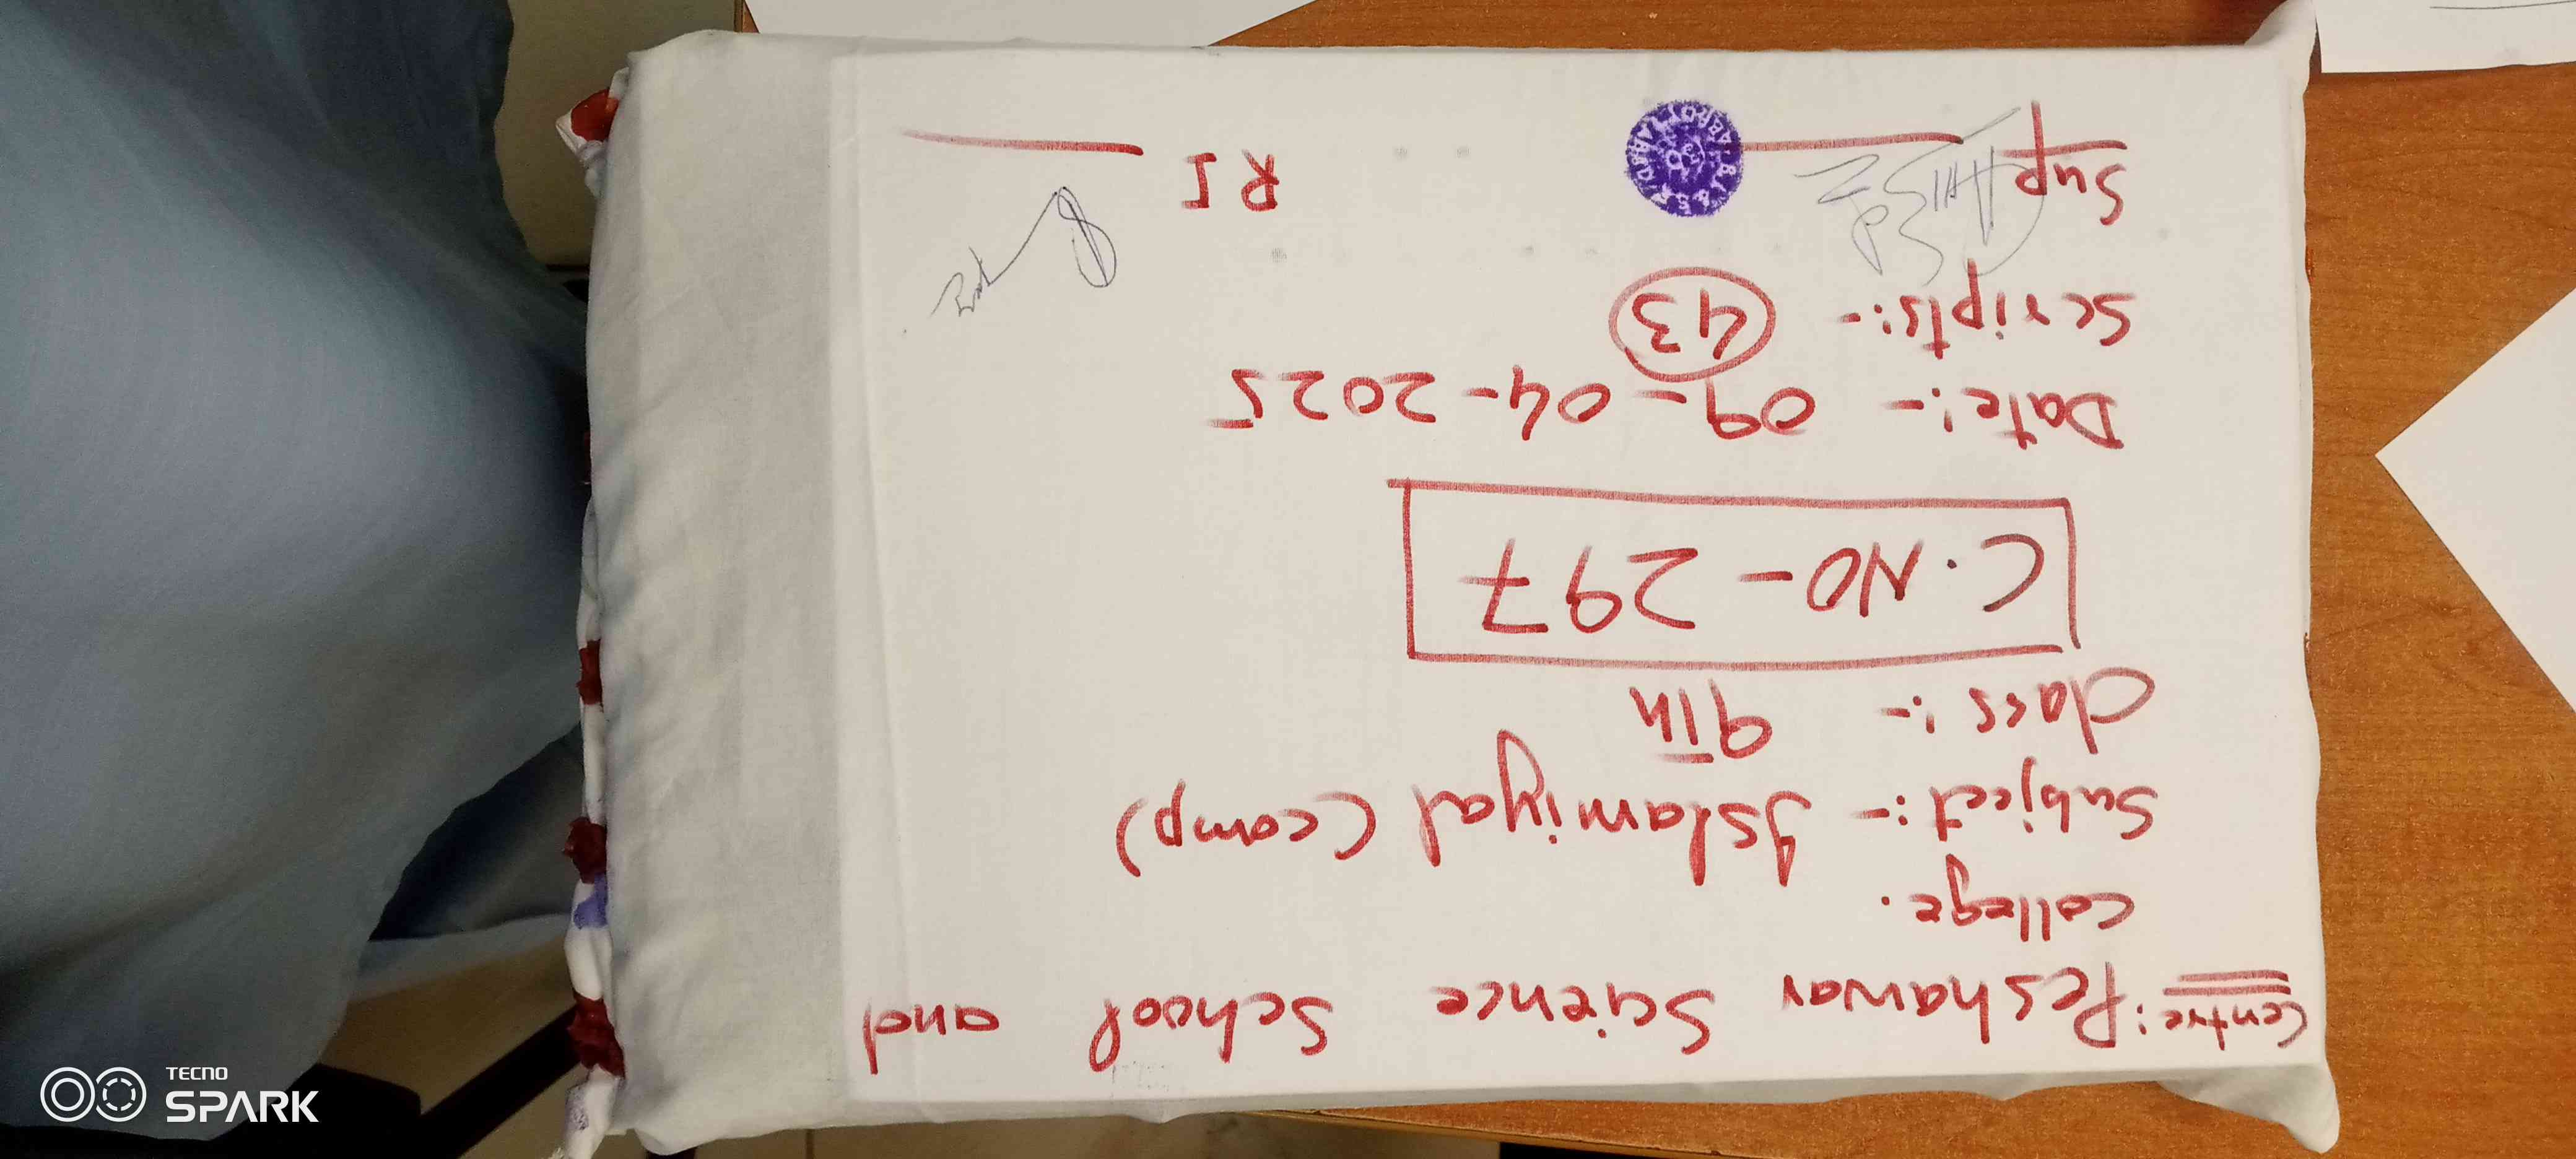 Centre: Peshawar Science School and
college.
Subject:- Islamiyat (comp)
class:- 9th
C.NO - 297
Date:- 09-04-2025
Scripts:- 43
Sup
RI
TECNO
SPARK